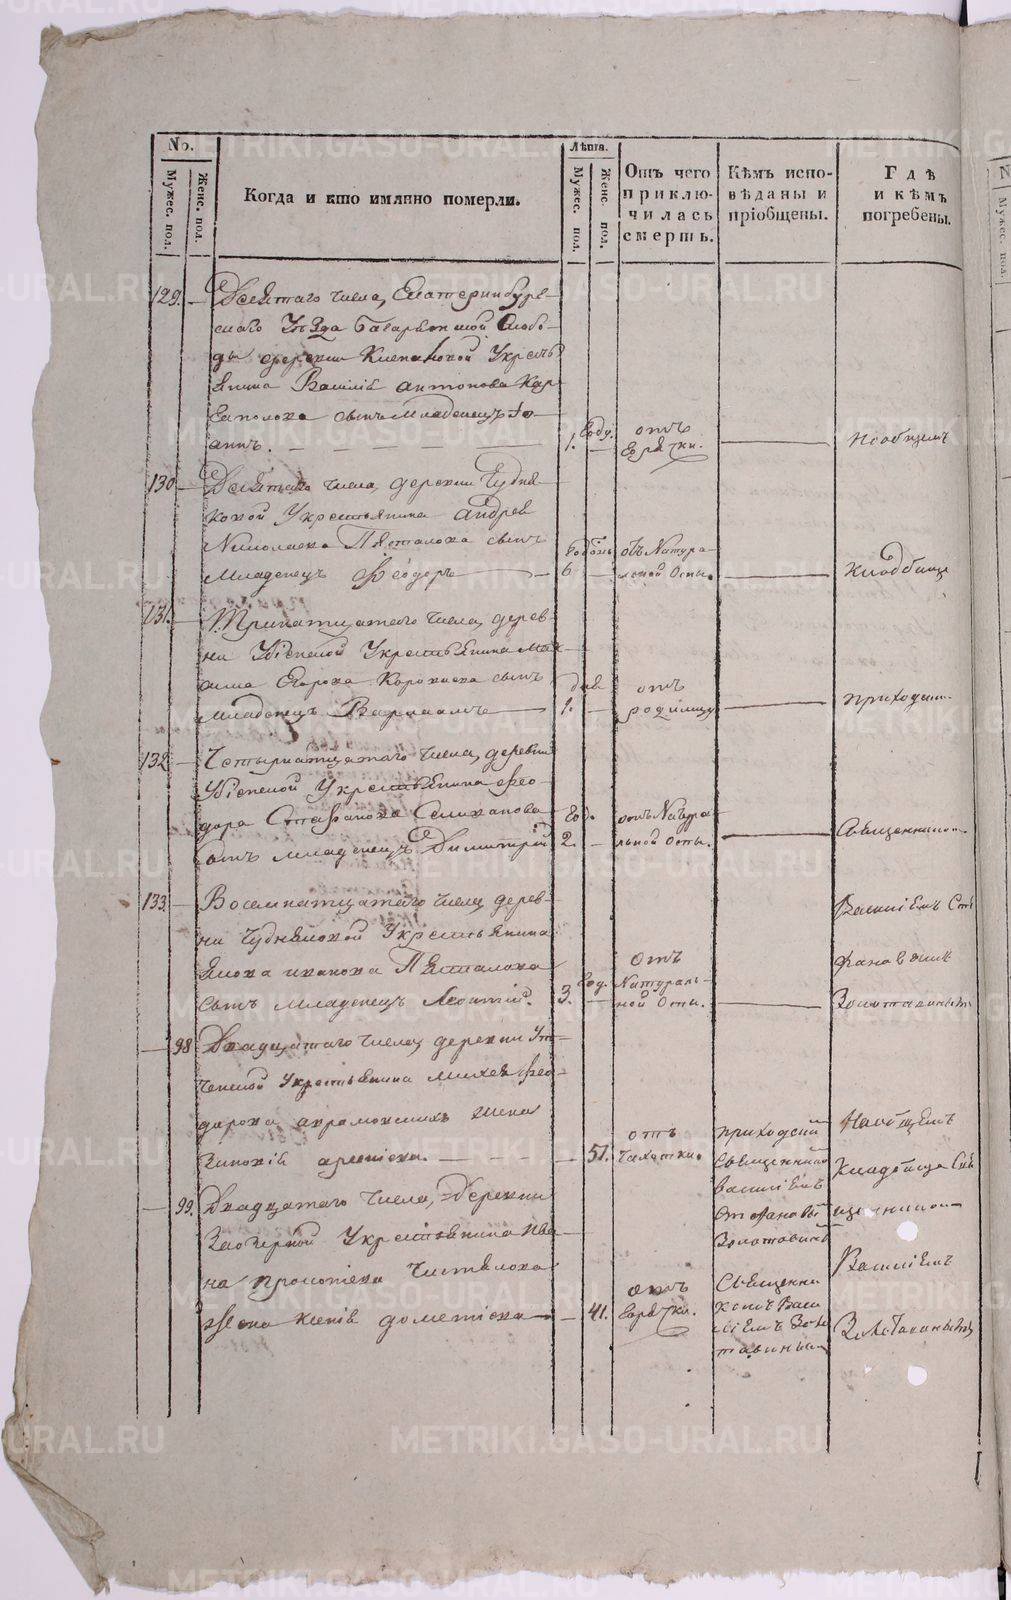 No.
Мужес. пол.
Женс. пол.
Когда и кто имянно померли.
Лѣта.
Мужес. пол.
Женс. пол.
Отъ чего приклю-чилась смерть.
Кѣмъ испо-вѣданы и прiобщены.
Гдѣ и кѣмъ погребены.
129.
Десятаго числа, Екатеринбург-
скаго Уѣзда Багарякской Слобо-
ды деревни Крестья
янина Василiя Антонова
сынъ младенецъ Iо-
аннъ.
Году.
1.
отъ
горячки.
На общемъ
130
Десятаго числа, деревни
ковой Крестьянина Андрея
Николаева Пѣсталова сынъ
Младенецъ Ѳеодоръ
Годовъ
6
отъ Натура-
льной Оспы.
Кладбище
131.
Тринатцатаго числа, дерев-
ни Крестьянина Мак-
сима Егорова сынъ
младенецъ Варлаамъ
дня
1.
отъ
родимцу
приходским
132
Четырнатцатаго числа, деревни
Крестьянина Ѳео-
дора Стафанова Селиханова
сынъ младенецъ Димитрiй
Год.
2.
отъ Натура-
льной Оспы.
Священником
133.
Восемнатцатаго числа дерев-
ни Крестьянина
Якова Иванова Пѣсталова
сынъ младенецъ Леонтiй.
год.
3.
отъ
Натураль-
ной Оспы.
Василiемъ Сте
фановымъ
Золотавинымъ
98
Двадцатаго числа, деревни
Крестьянина Михея Ѳео-
дорова жена
Зиновiя
51.
отъ
чахотки.
приходский
Священникъ
Василiемъ
Стефановы
Золотавинъ
На общемъ
Кладбище Свя
щенником
99.
Двадцатаго числа, Деревни
Заозерной Крестьянина Ива-
на Прокопiева Чистякова
Жена Ксенiя Дометiева
41.
отъ
Горячки.
Священни
комъ Васи
лiемъ Золо
тавинымъ
Василiемъ
Золотавинымъ
METRIKI.GASO-URAL.RU